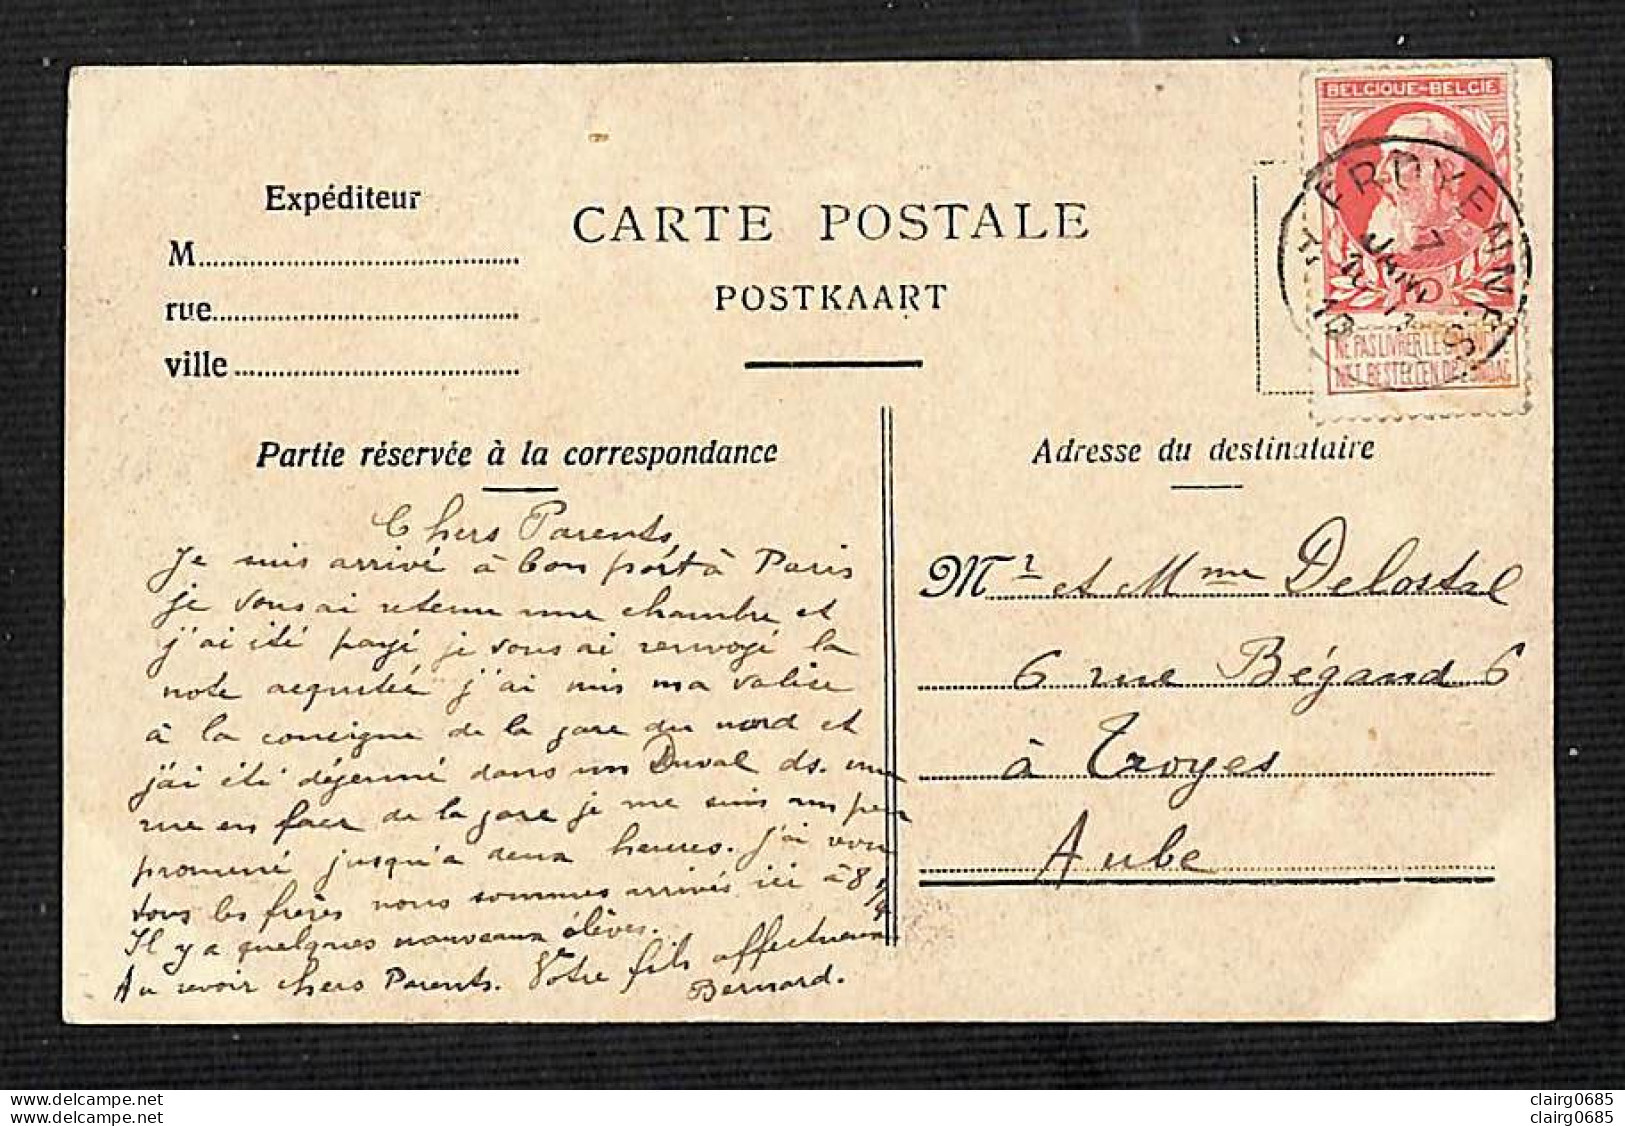 BELGIQUE-BELGIE
FROYENNES
7
JANV
10
NE PAS LIVRER LE DIMANCHE
NIET BESTELLEN OP ZONDAG
Expéditeur
M
rue
ville
CARTE POSTALE
POSTKAART
Partie réservée à la correspondance
Adresse du destinataire
Chers Parents,
Je suis arrivé à bon port à Paris
je vous ai retenu une chambre et
j'ai été payé je vous ai renvoyé la
note acquitée j'ai mis ma valise
à la consigne de la gare du nord et
j'ai été déjeunné dans un Duval ds. une
rue en face de la gare je me suis un peu
promené jusqu'a deux heures. J'ai revu
tous les frères nous sommes arrivés ici à 8 1/4
Il y a quelques nouveaux élèves.
Au revoir chers Parents. Votre fils affectueux
Bernard.
Mr et Mme Delostal
6 rue Bégand 6
à Troyes
Aube
delcampe.net
delcampe.net
clairg0685
clairg0685